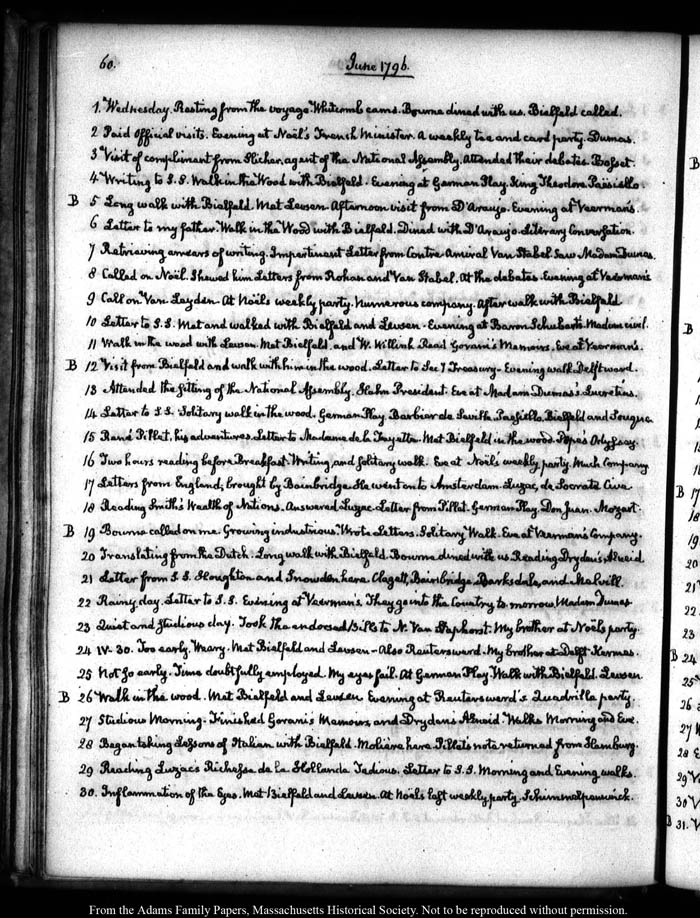 60. June 1796.
1. Wednesday. Resting from the voyage. Whitcomb came. Bourne dined with us. Bielfeld called.
2 Paid official visits. Evening at Noël's French Minister. A weekly tea and card party. Dumas.
3 Visit of compliment from Slicher, agent of the National Assembly. Attended their debates. Bosset.
4 Writing to S.S. Walk in the Wood with Bielfeld. Evening at German Play. King Theodore. Paisiello.
B 5 Long walk with Bielfeld. Met Lewsen. Afternoon visit from D'Araujo. Evening at Veerman's.
6 Letter to my father. Walk in the Wood with Bielfeld. Dined with D'Araujo. Literary Conversation.
7 Retrieving arrears of writing. Impertinent Letter from Contre-Amiral Van Stabel. Saw Madam Dumas.
8 Called on Noël. Shewed him Letters from Rohan and Van Stabel. At the debates. Evening at Veerman's
9 Call on Van Leyden. At Noël's weekly party. Numerous company. After walk with Bielfeld
10 Letter to S.S. Met and walked with Bielfeld and Lewsen. Evening at Baron Schubart's. Madam civil.
11 Walk in the wood with Lewsen. Met Bielfeld, and W. Willink. Read Gorani's Memoirs. Eve at Veerman's.
B 12 Visit from Bielfeld and walk with him in the wood. Letter to Sec'y Treasury. Evening walk Delftward.
13 Attended the sitting of the National Assembly. Hahn President. Eve at Madam Dumas's. Lucretius.
14 Letter to S.S. Solitary walk in the wood. German Play. Barbier de Seville. Paesiello. Bielfeld and
15 René Pillet, his adventures. Letter to Madame de la Fayette. Met Bielfeld in the wood. Pope's Odyssey.
16 Two hours reading before Breakfast. Writing, and solitary walk. Eve at Noël's weekly party. Much Company
17 Letters from England, brought by Bainbridge. He went on to Amsterdam. Luzac, de Socrate Cive
18 Reading Smith's Wealth of Nations. Answered Luzac. Letter from Pillet. German Play. Don Juan. Mozart.
B 19 Bourne called on me. Growing industrious. Wrote Letters. Solitary Walk. Eve at Veerman's Company.
20 Translating from the Dutch. Long walk with Bielfeld. Bourne dined with us. Reading Dryden's Aeneid.
21 Letter from S.S. Stoughton and Snowden here. Clagett, Bainbridge, Barksdale, and Melvill.
22 Rainy day. Letter to S.S. Evening at Veerman's. They go into the Country to morrow. Madam Dumas
23 Quiet and studious day. Took the endorsed Bills to N. Van Staphorst. My brother at Noël's party
24 IV-30. Too early. Weary. Met Bielfeld and Lewsen. Also Reutersward. My brother at Delft Kermes.
25 Not so early. Time doubtfully employed. My eyes fail. At German Play. Walk with Bielfeld. Lewsen
B 26 Walk in the wood. Met Bielfeld and Lewsen. Evening at Reutersward's Quadrille party.
27 Studious Morning. Finished Gorani's Memoirs, and Dryden's Aeneid. Walks Morning and Eve.
28 Began taking Lessons of Italian with Bielfeld. Molière here. Pillet's note returned from Hamburg.
29 Reading Luzac's Richesse de la Hollande. Tedious. Letter to S.S. Morning and Evening walks.
30. Inflammation of the Eyes. Met Bielfeld and Lewsen. At Noël's last weekly party. Schimmelpenninck.
From the Adams Family Papers, Massachusetts Historical Society. Not to be reproduced without permission.